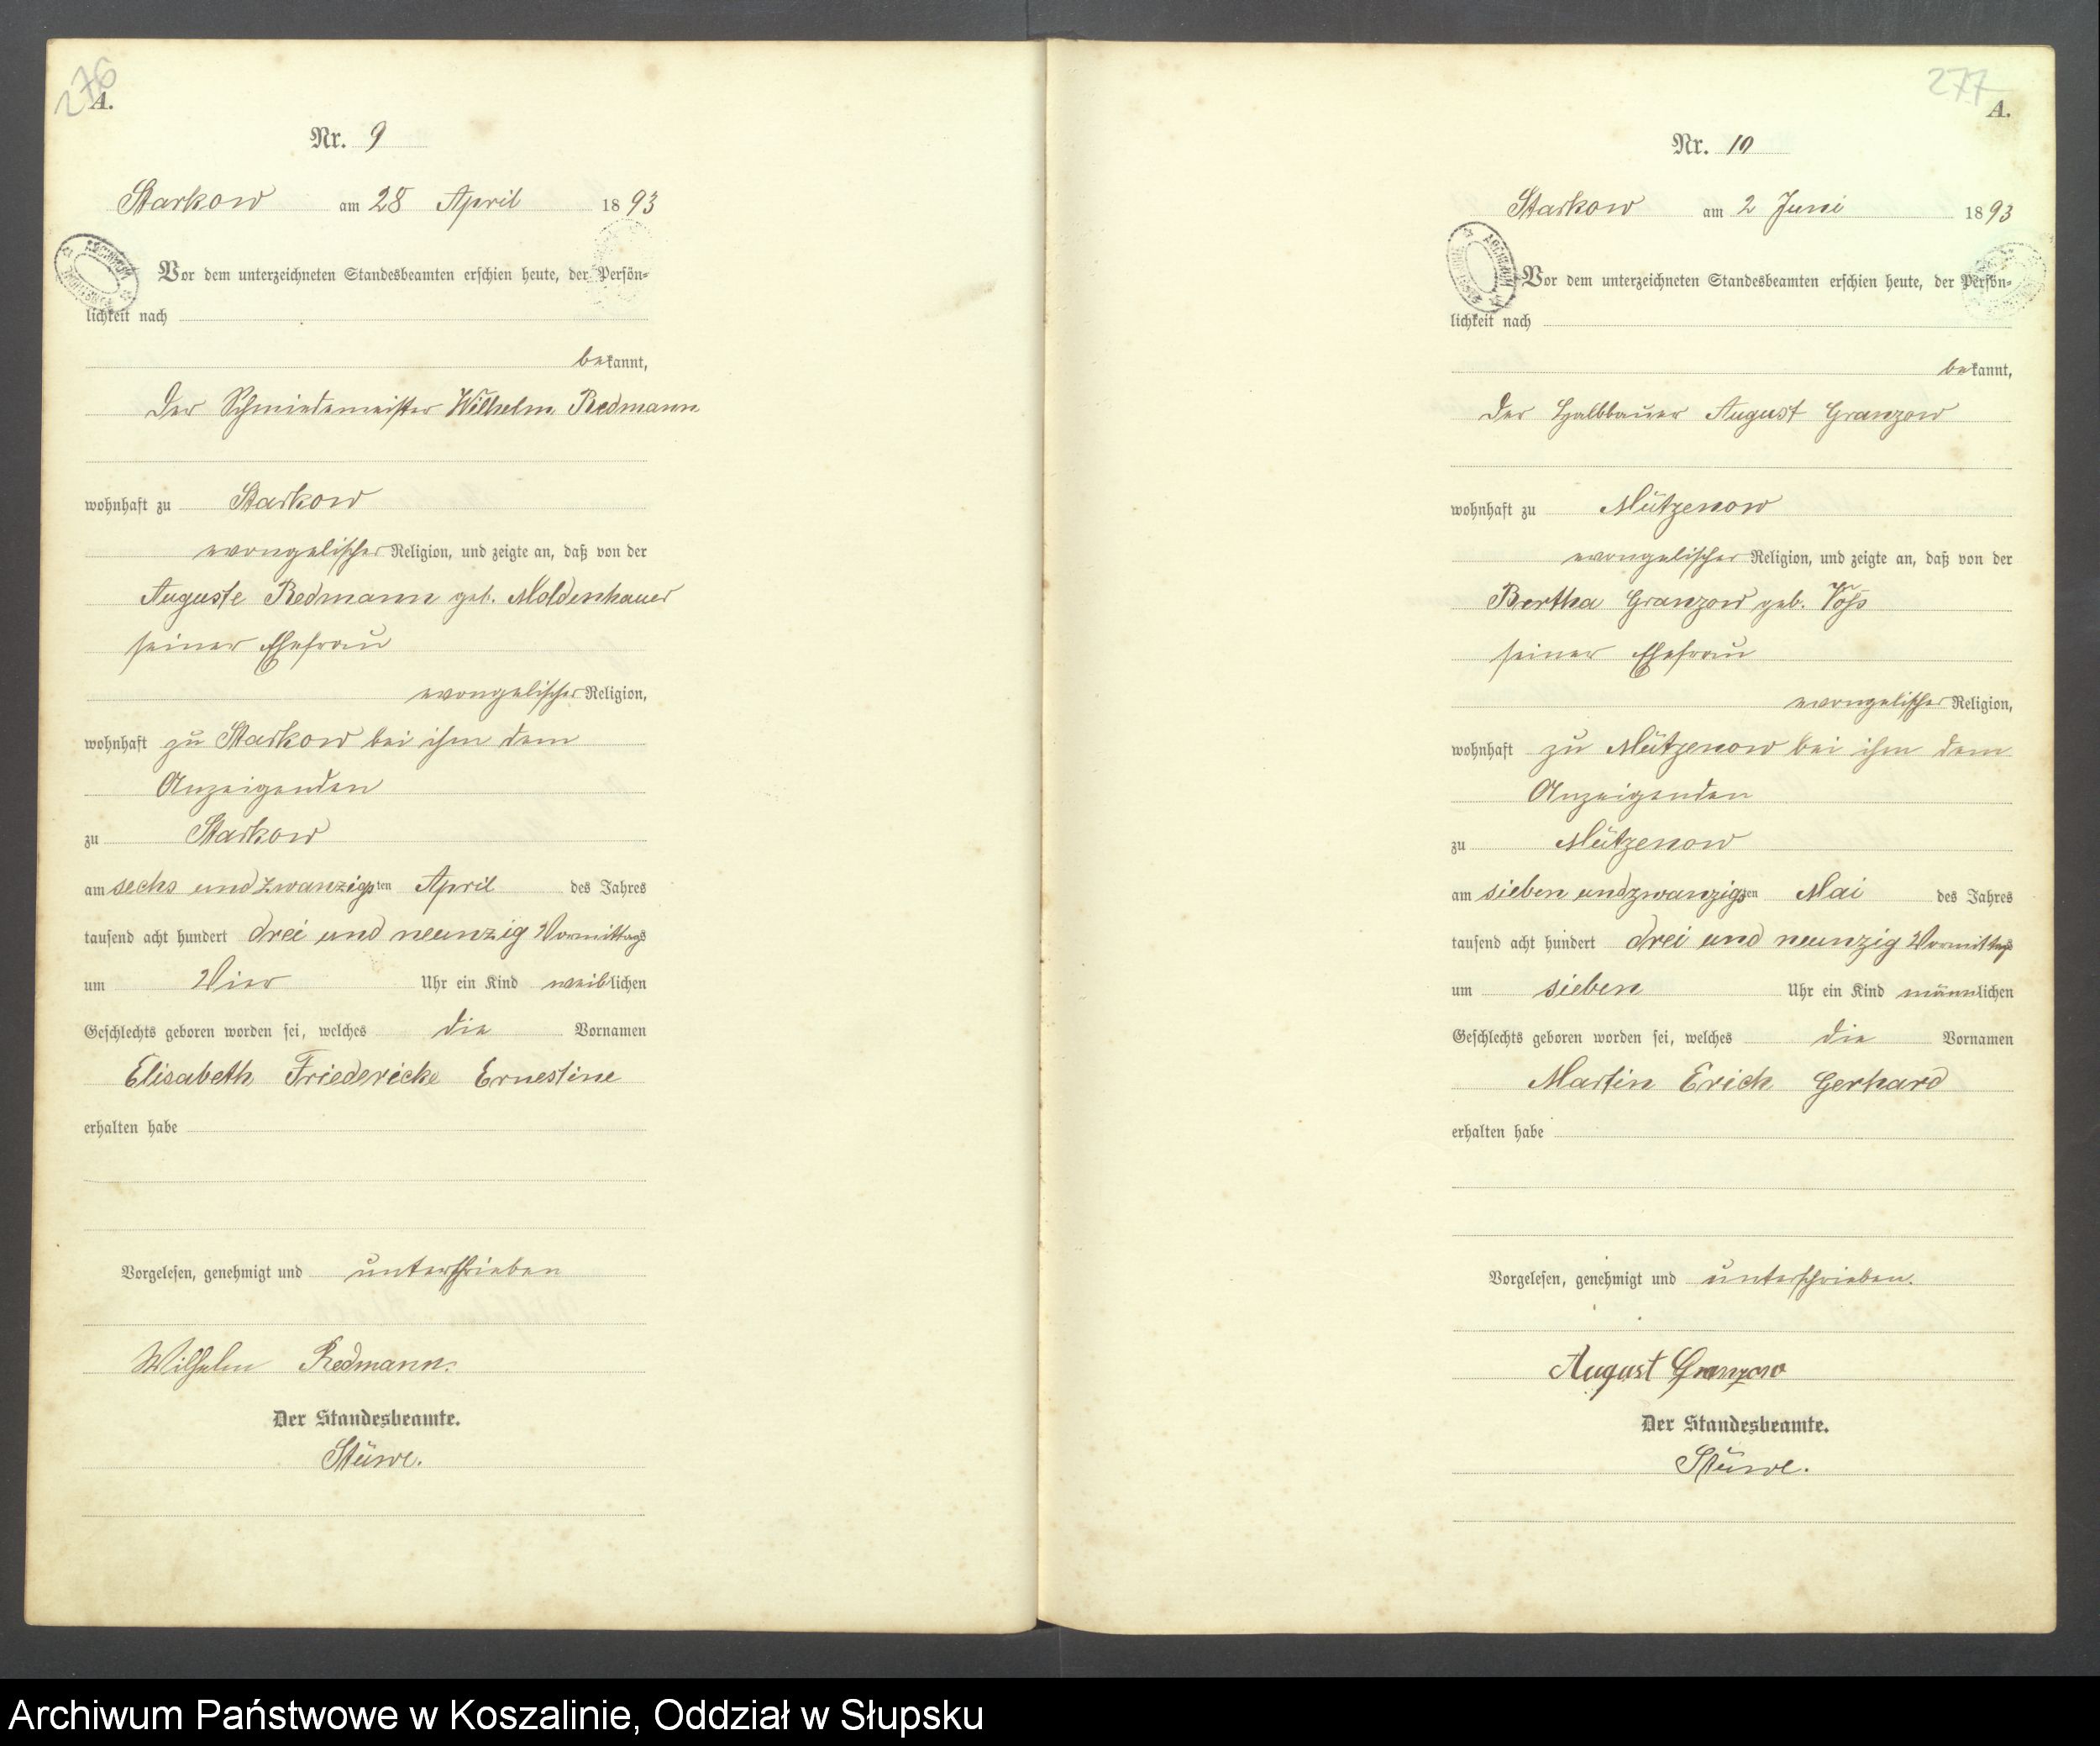 276
A.
Nr. 9
Starkow am 28 April 1893
Vor dem unterzeichneten Standesbeamten erschien heute, der Persön-
lichkeit nach
bekannt,
der Schmiedemeister Wilhelm Redmann
wohnhaft zu Starkow
evangelischer Religion, und zeigte an, daß von der
Auguste Redmann geb. Moldenhauer
seiner Ehefrau
evangelischer Religion,
wohnhaft zu Starkow bei ihm dem
Anzeigenden
zu Starkow
am sechs und zwanzigsten April des Jahres
tausend acht hundert drei und neunzig Vormittags
um Vier Uhr ein Kind weiblichen
Geschlechts geboren worden sei, welches die Vornamen
Elisabeth Friedericke Ernestine
erhalten habe
Vorgelesen, genehmigt und unterschrieben
Wilhelm Redmann.
Der Standesbeamte.
Stüwe.
277
A.
Nr. 10
Starkow am 2 Juni 1893
Vor dem unterzeichneten Standesbeamten erschien heute, der Persön-
lichkeit nach
bekannt,
der Halbbauer August Granzow
wohnhaft zu Mützenow
evangelischer Religion, und zeigte an, daß von der
Bertha Granzow geb. Voß
seiner Ehefrau
evangelischer Religion,
wohnhaft zu Mützenow bei ihm dem
Anzeigenden
zu Mützenow
am sieben undzwanzigsten Mai des Jahres
tausend acht hundert drei und neunzig Vormittags
um sieben Uhr ein Kind männlichen
Geschlechts geboren worden sei, welches die Vornamen
Martin Erich Gerhard
erhalten habe
Vorgelesen, genehmigt und unterschrieben.
August Granzow
Der Standesbeamte.
Stüwe.
Archiwum Państwowe w Koszalinie, Oddział w Słupsku